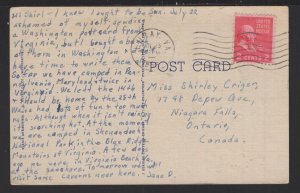 Hi Shirl - I know I ought to be Sun. July 22
ashamed of myself, sending
a Washington postcard from
Virginia, but I bought about
of them in Washington & didn't
have time to write them.
So far we have camped in Penn-
sylvania, Maryland & twice in
Virginia. We left the 14th &
should be home by the 25th.
We've had lots of fun & too much
rain. Although when it isn't raining
it's scorching hot. At the moment
we are camped in Shenandoah
National Park in the Blue Ridge
Mountains of Virginia. A few days
ago we were in Virginia Beach
at the seashore. Tomorrow we'll
visit some Caverns near here - Jane D.
POST CARD
UNITED STATES
POSTAGE
CENTS
Miss Shirley Crigger,
Depew Ave.,
Niagara Falls,
Ontario,
Canada.